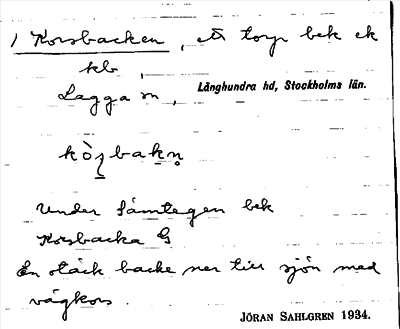 1 Korsbacken, ett torp bek ek
kb,
Lagga sn,
Långhundra hd, Stockholms län.
kò̱ʂbakn̥
Under Sämtegen bek
Korsbacka G
En stäck backe ner till sjön med
vägkors.
JÖRAN SAHLGREN 1934.